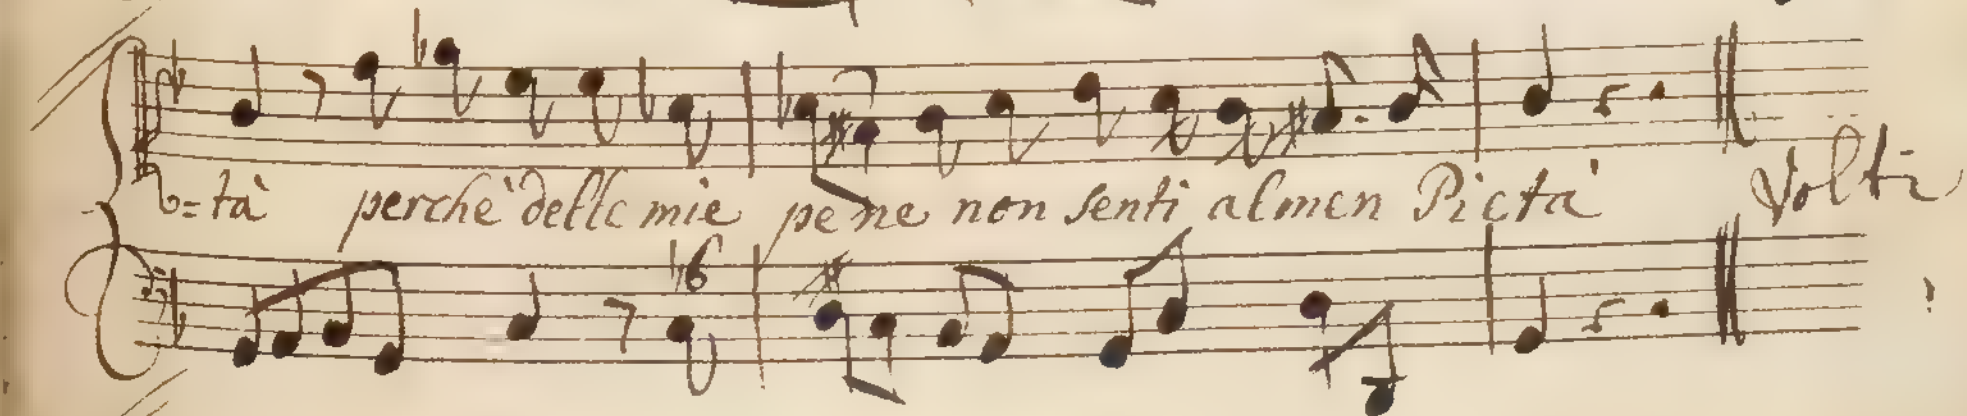 b=tà perchè delle mie pene non senti almen Pietà Volti
6